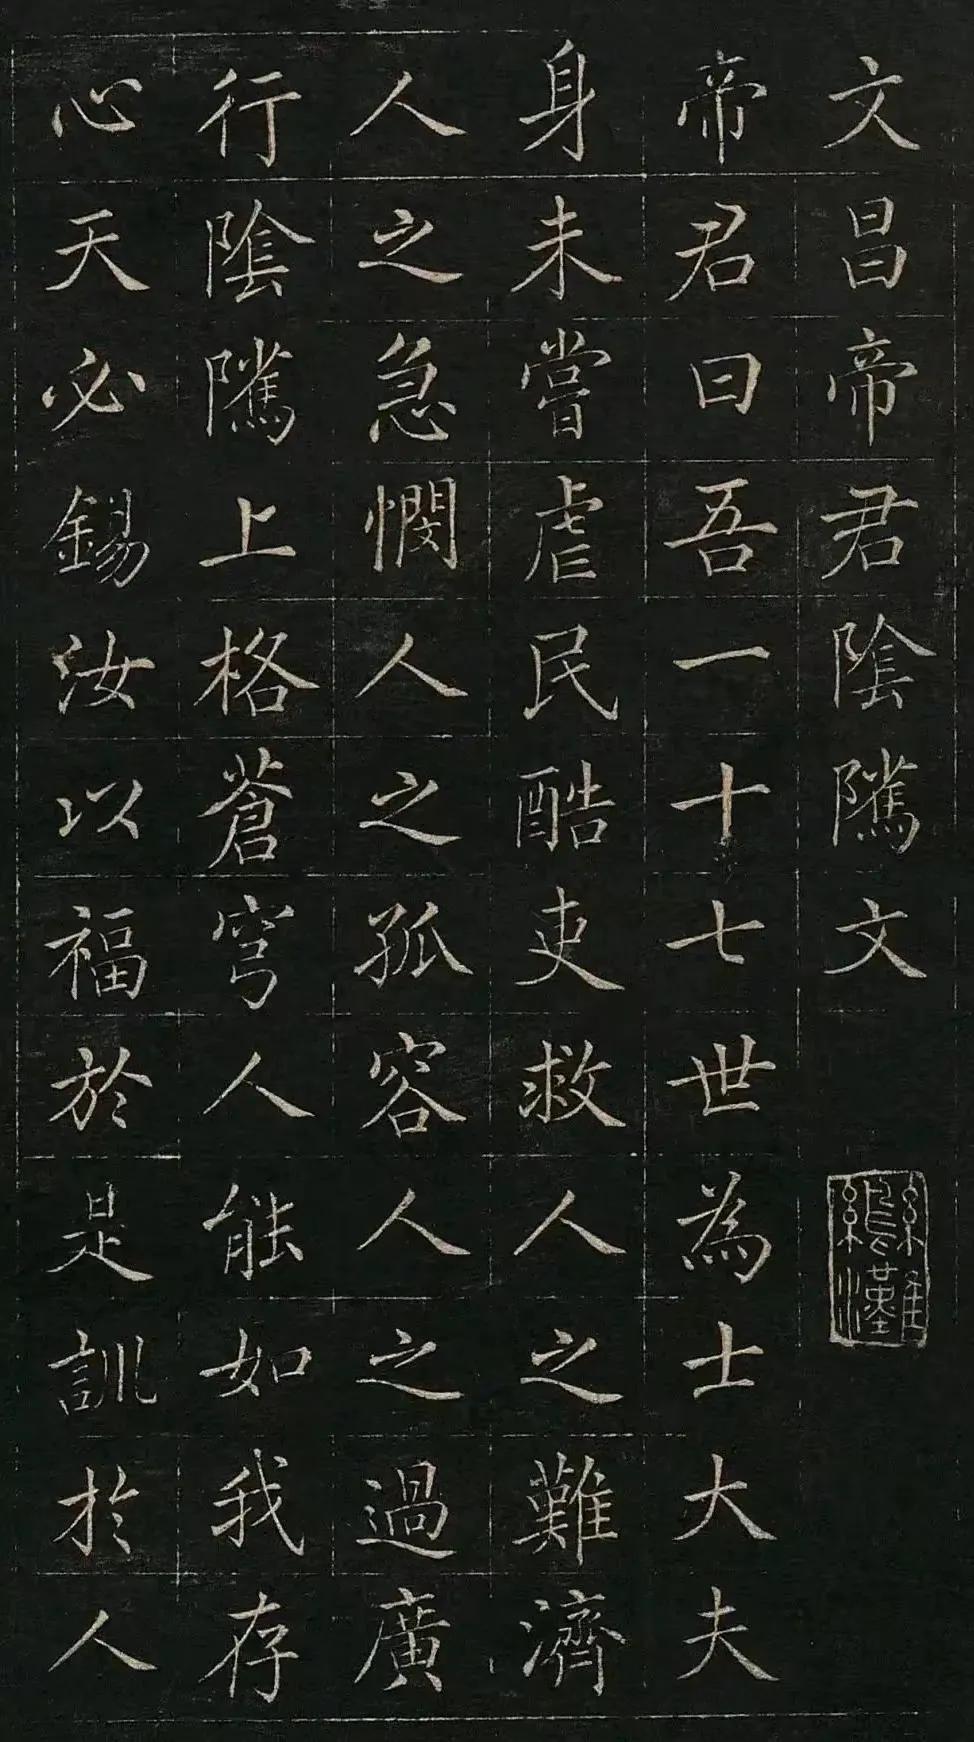 文昌帝君陰隲文
帝君曰吾一十七世為士大夫
身未嘗虐民酷吏救人之難濟
人之急憫人之孤容人之過廣
行陰隲上格蒼穹人能如我存
心天必錫汝以福於是訓於人